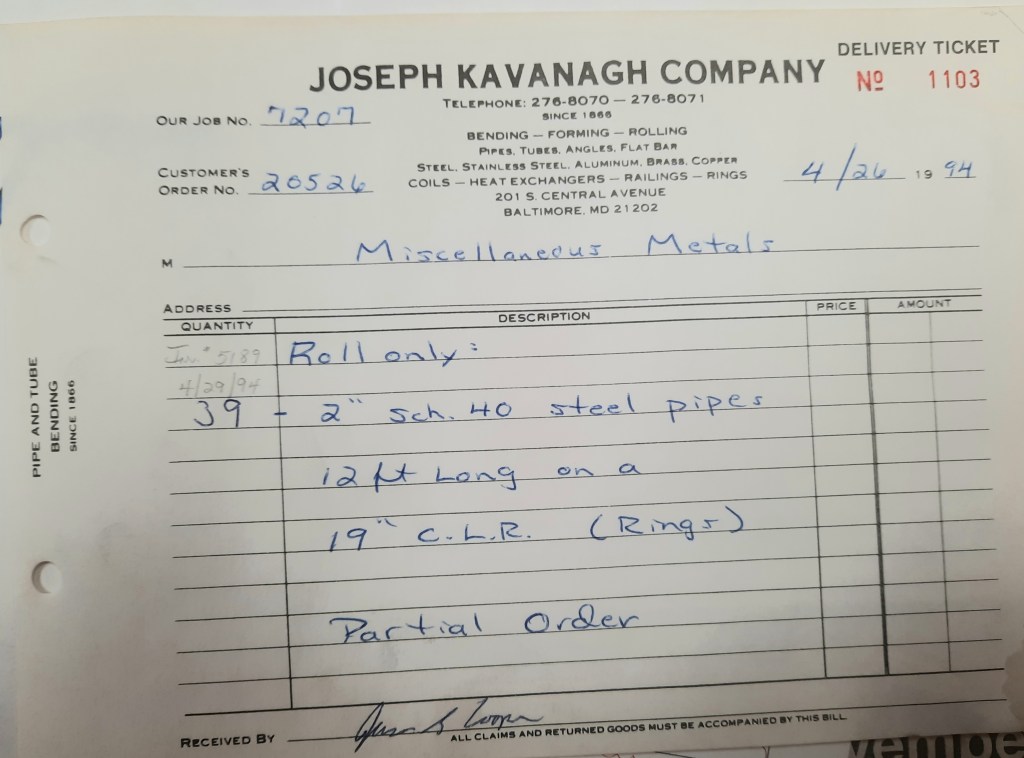 DELIVERY TICKET
JOSEPH KAVANAGH COMPANY
Nº 1103
TELEPHONE: 276-8070 — 276-8071
SINCE 1866
OUR JOB NO. 7207
BENDING — FORMING — ROLLING
PIPES, TUBES, ANGLES, FLAT BAR
STEEL, STAINLESS STEEL, ALUMINUM, BRASS, COPPER
CUSTOMER'S
ORDER NO. 20526
COILS — HEAT EXCHANGERS — RAILINGS — RINGS
4/26 19 94
201 S. CENTRAL AVENUE
BALTIMORE, MD 21202
M Miscellaneous Metals
ADDRESS
QUANTITY DESCRIPTION PRICE AMOUNT
Inv.# 5189 Roll only:
4/29/94
39 - 2" sch. 40 steel pipes
12 ft Long on a
19" C.L.R. (Rings)
Partial Order
RECEIVED BY
ALL CLAIMS AND RETURNED GOODS MUST BE ACCOMPANIED BY THIS BILL
PIPE AND TUBE
BENDING
SINCE 1866